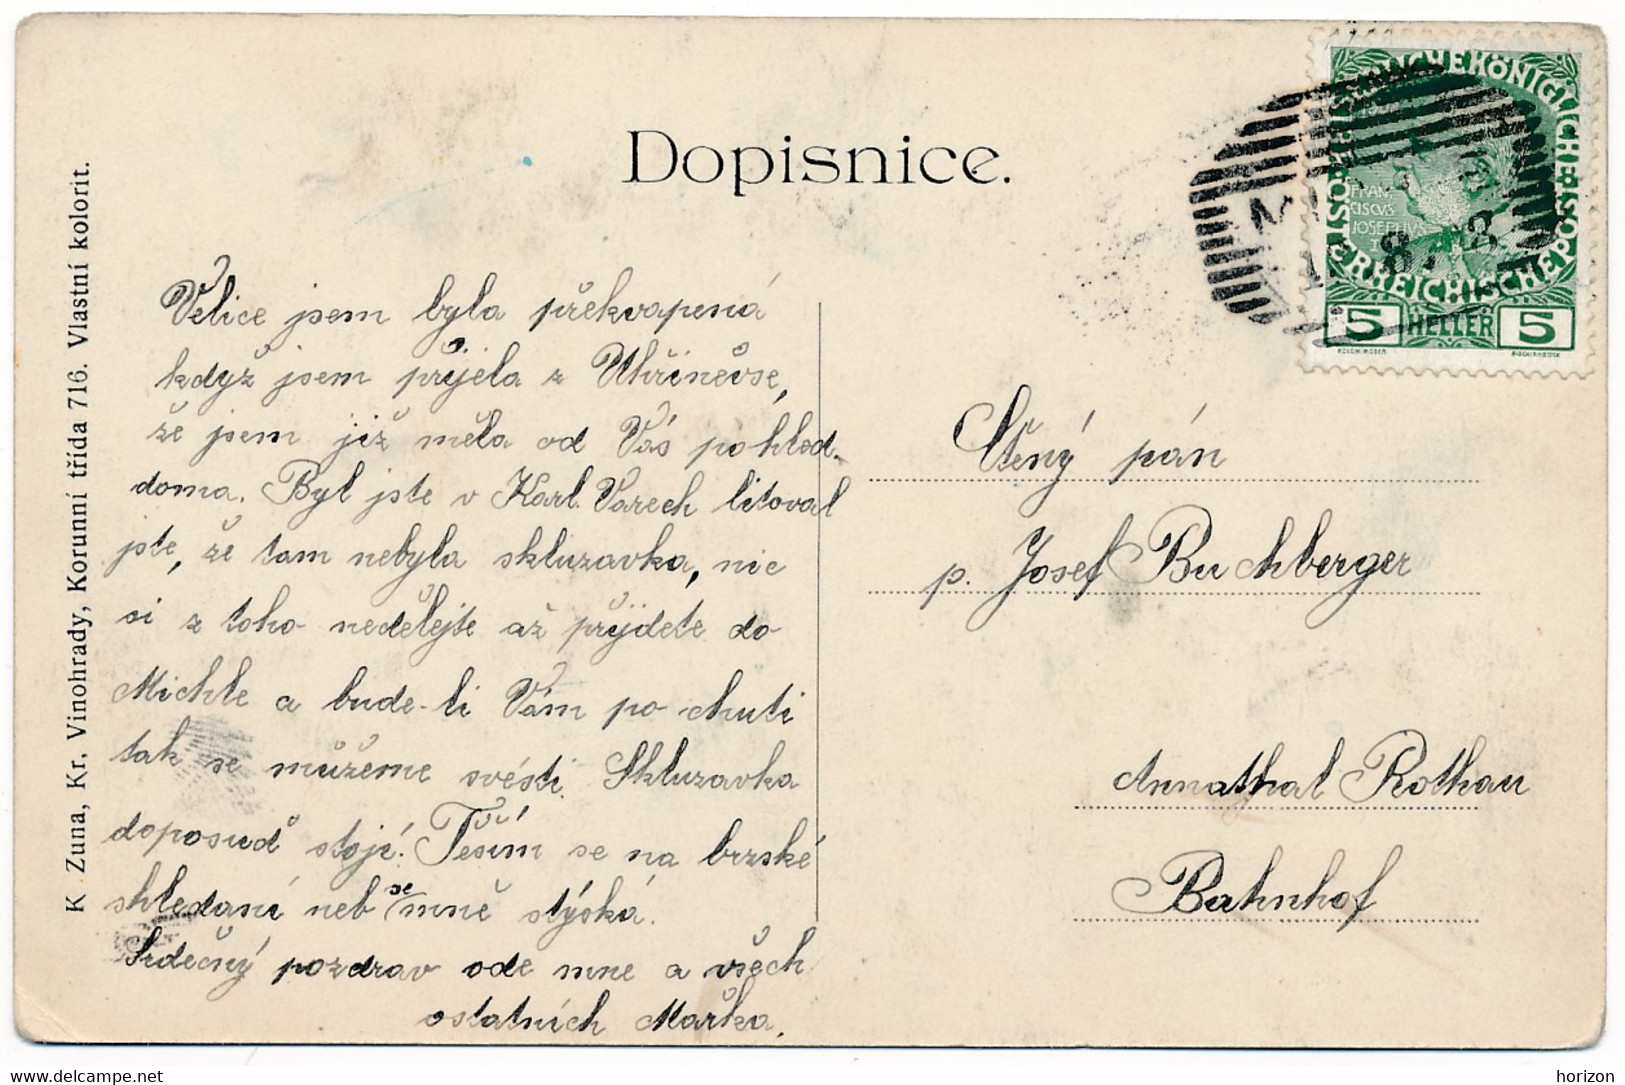 K Zuna, Kr. Vinohrady, Korunní třída 716. Vlastní kolorit.
Dopisnice.
Velice jsem byla překvapená
když jsem přijela z Uhřiněvse,
že jsem již měla od Vás pohled
doma. Byl jste v Karl. Varech litoval
jste, že tam nebyla skluzavka, nic
si z toho nedělejte až přijdete do
Michle a bude-li Vám po chuti
tak se můžeme svésti. Skluzavka
doposud stojí. Těším se na brzské
shledaní neb se mně stýská.
Srdečný pozdrav ode mne a všech
ostatních Mařka.
Ctěný pán
p. Josef Buchberger
Annathal Rothau
Bahnhof
KÖNIGLICHE ÖSTERREICHISCHE POST
FRAN
CISCVS
JOSEPHVS
5 HELLER 5
horizon